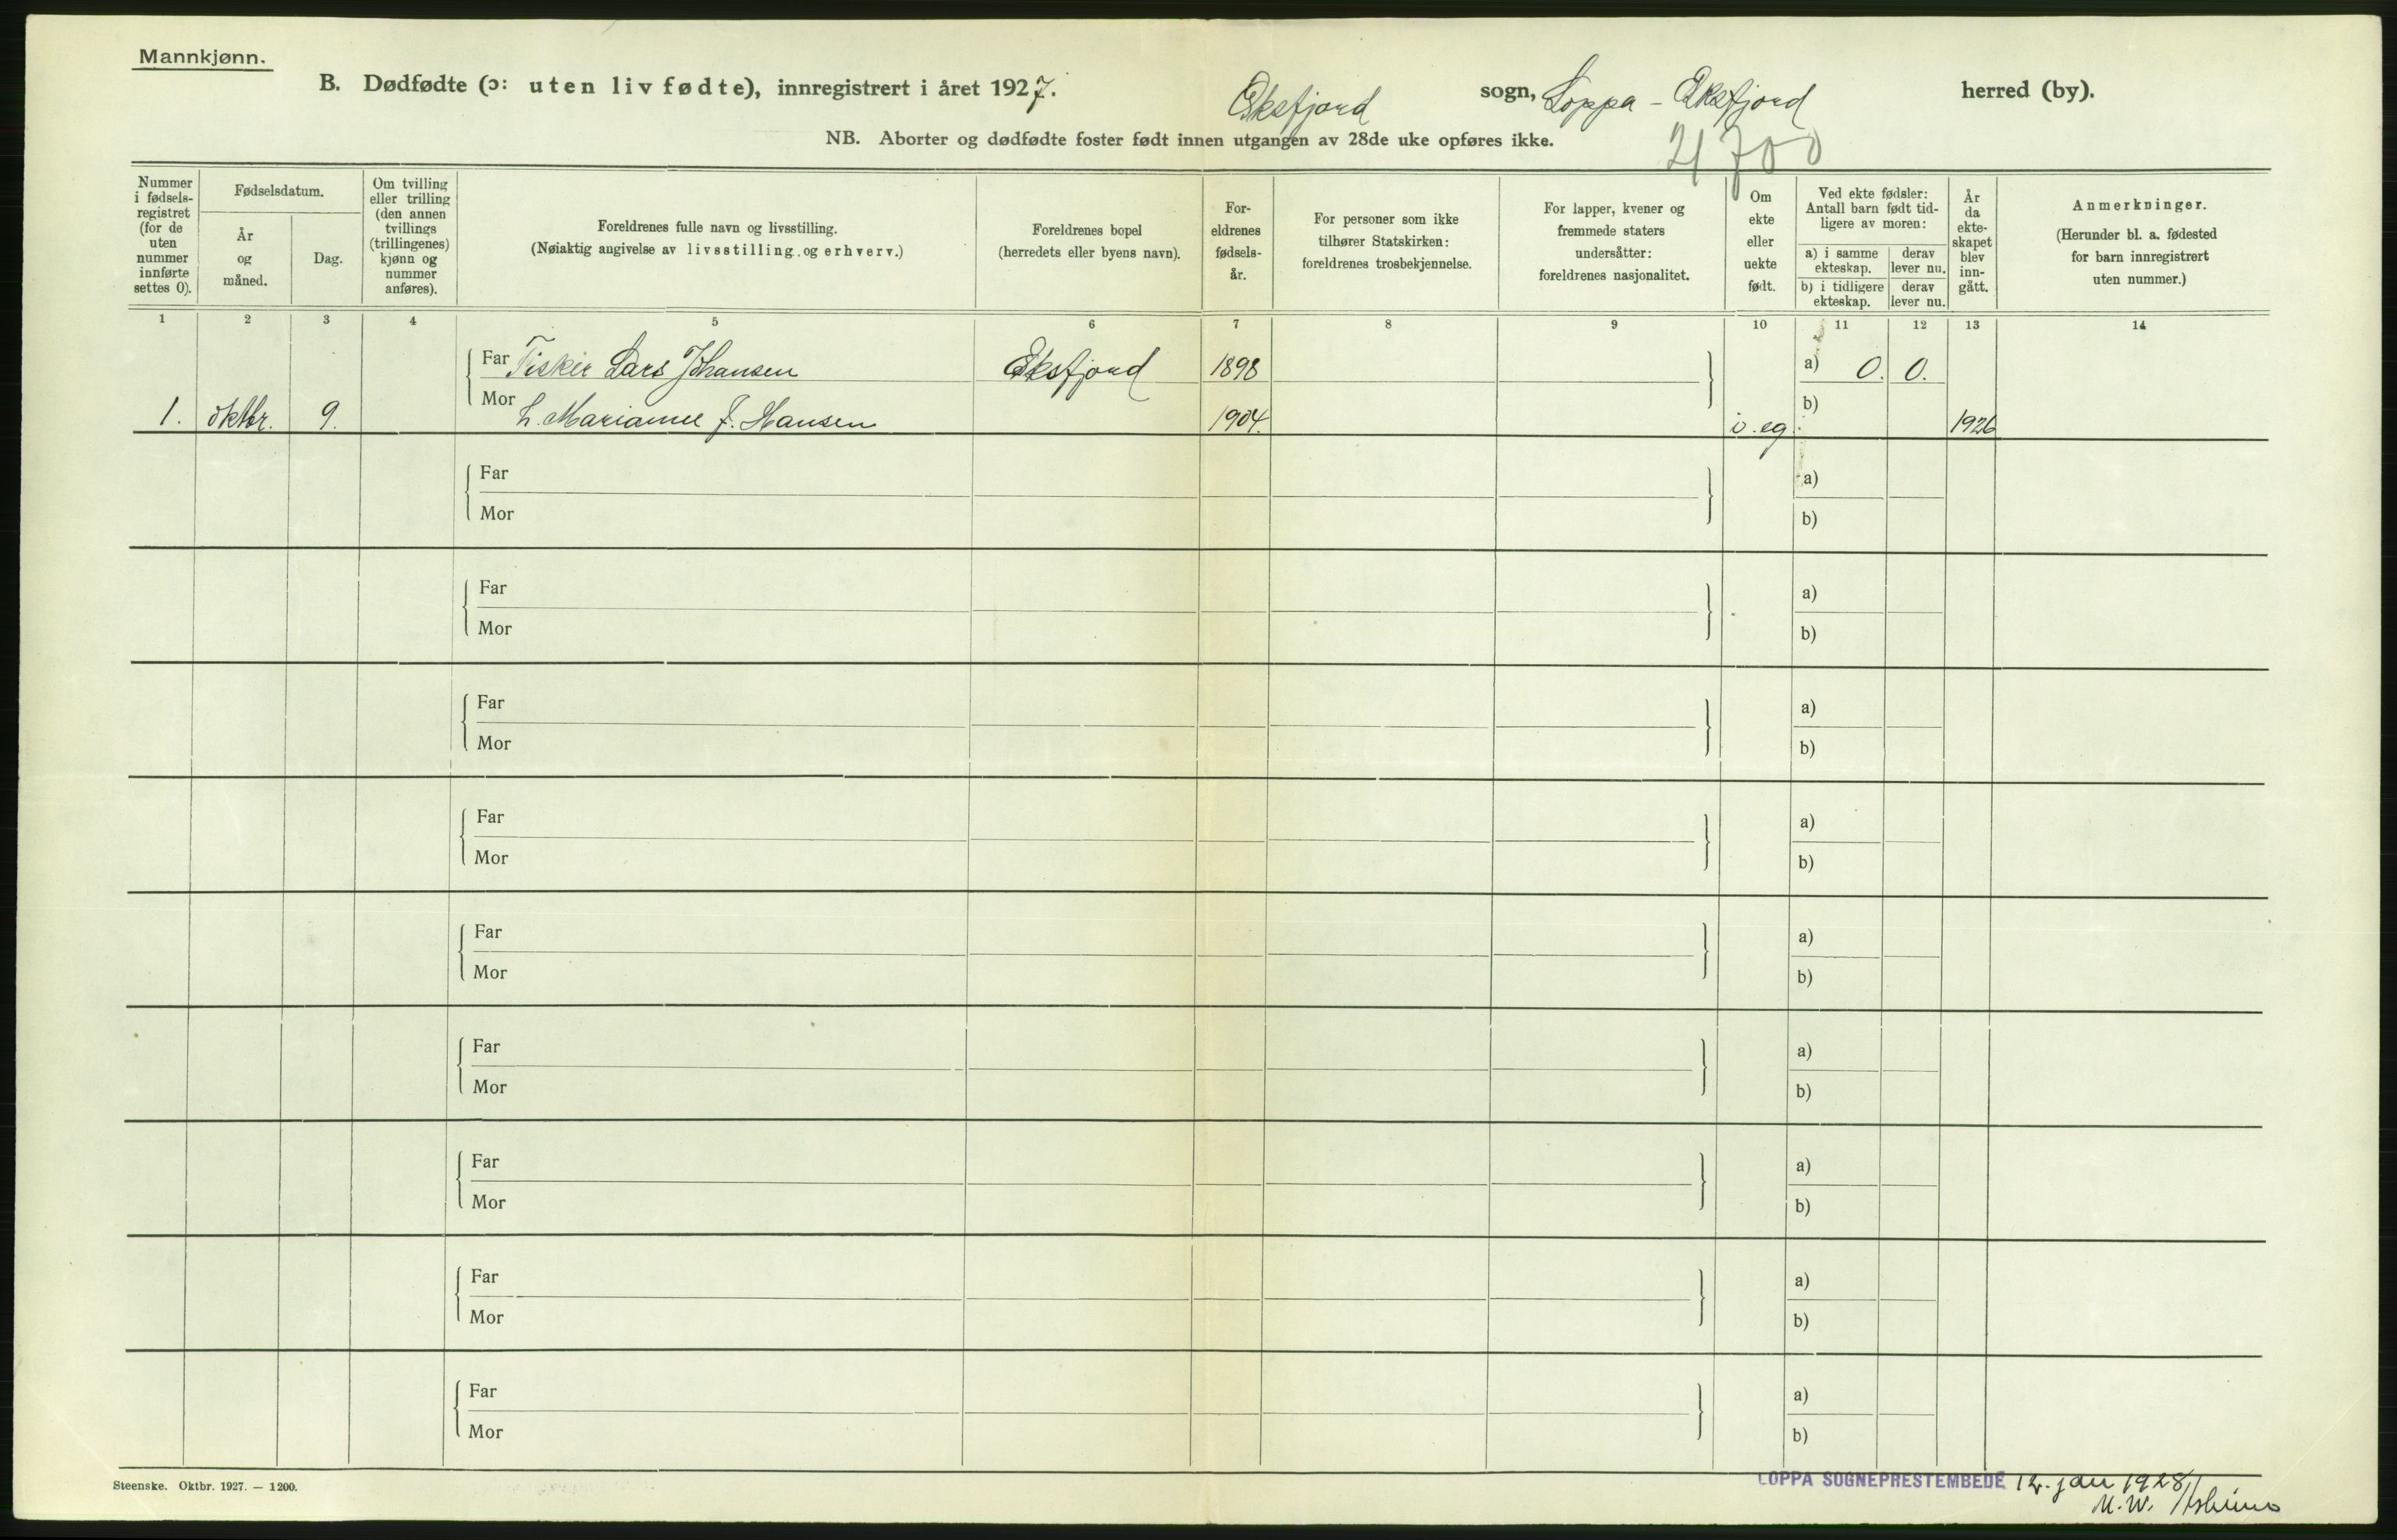 Mannkjønn.
B. Dødfødte (ɔ: uten liv fødte), innregistrert i året 1927. Øksfjord sogn, Loppa - Øksfjord herred (by).
NB. Aborter og dødfødte foster født innen utgangen av 28de uke opføres ikke.
Nummer i fødsels-registret (for de uten nummer innførte settes 0).
Fødselsdatum.
År og måned.
Dag.
Om tvilling eller trilling (den annen tvillings (trillingenes) kjønn og nummer anføres).
Foreldrenes fulle navn og livsstilling.
(Nøiaktig angivelse av livsstilling og erhverv.)
Foreldrenes bopel
(herredets eller byens navn).
For-eldrenes fødsels-år.
For personer som ikke tilhører Statskirken: foreldrenes trosbekjennelse.
For lapper, kvener og fremmede staters undersåtter: foreldrenes nasjonalitet.
Om ekte eller uekte født.
Ved ekte fødsler: Antall barn født tid-ligere av moren:
a) i samme ekteskap.
derav lever nu.
b) i tidligere ekteskap.
derav lever nu.
År da ekte-skapet blev inn-gått.
Anmerkninger.
(Herunder bl. a. fødested for barn innregistrert uten nummer.)
1 2 3 4 5 6 7 8 9 10 11 12 13 14
Far Fisker Lars Johansen Øksfjord 1898 a) 0. 0.
1. oktbr. 9. Mor h. Marianne J. Hansen 1904. i. eg. b) 1926
Far a)
Mor b)
Far a)
Mor b)
Far a)
Mor b)
Far a)
Mor b)
Far a)
Mor b)
Far a)
Mor b)
Far a)
Mor b)
Far a)
Mor b)
Far a)
Mor b)
Steenske. Oktbr. 1927. — 1200.
LOPPA SOGNEPRESTEMBEDE 12. jan 1928
M. W.